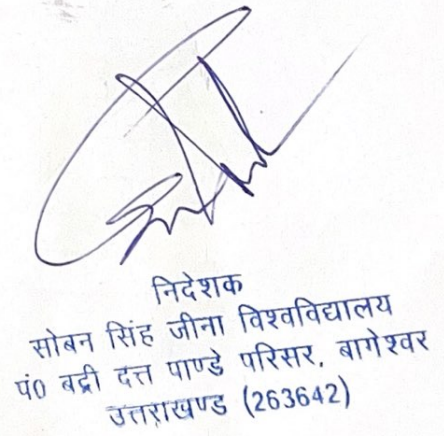 निदेशक
सोबन सिंह जीना विश्वविद्यालय
पं0 बद्री दत्त पाण्डे परिसर, बागेश्वर
उत्तराखण्ड (263642)